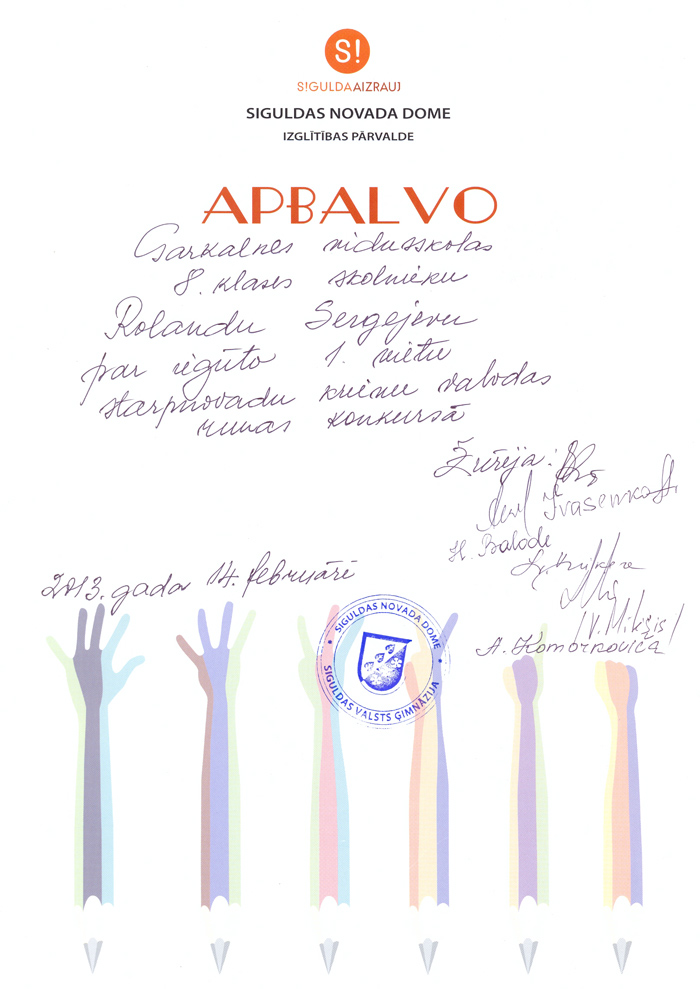 S!
S!GULDAAIZRAUJ
SIGULDAS NOVADA DOME
IZGLĪTĪBAS PĀRVALDE
APBALVO
Garkalnes vidusskolas
8. klases skolnieku
Rolandu Sergejevu
par iegūto 1. vietu
starpnovadu krievu valodas
runas konkursā
Žūrija:
Ivasenko
H. Balode
2013. gada 14. februārī
/V. Mikižis/
A. Komoroviča
SIGULDAS NOVADA DOME
SIGULDAS VALSTS ĢIMNĀZIJA